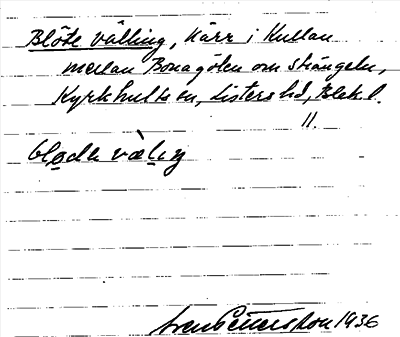 Blöte välling, kärr i Kullan
mellan Bonagölen om strängeln,
Kyrkhults sn, Listers hd, Blek. l.
11.
blǫdu välɩŋ
Sven Pettersson 1936